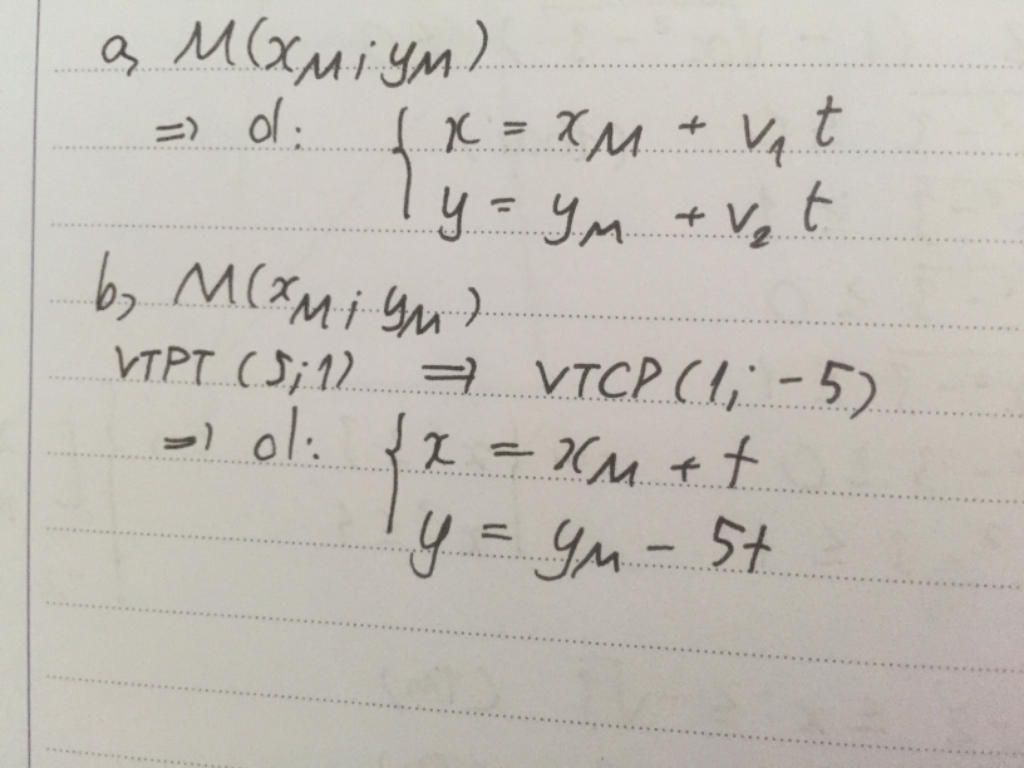 a, M(x_M; y_M)
=> d: { x = x_M + v_1 t
y = y_M + v_2 t
b, M(x_M; y_M)
VTPT (5;1) => VTCP(1; -5)
=> d: { x = x_M + t
y = y_M - 5t